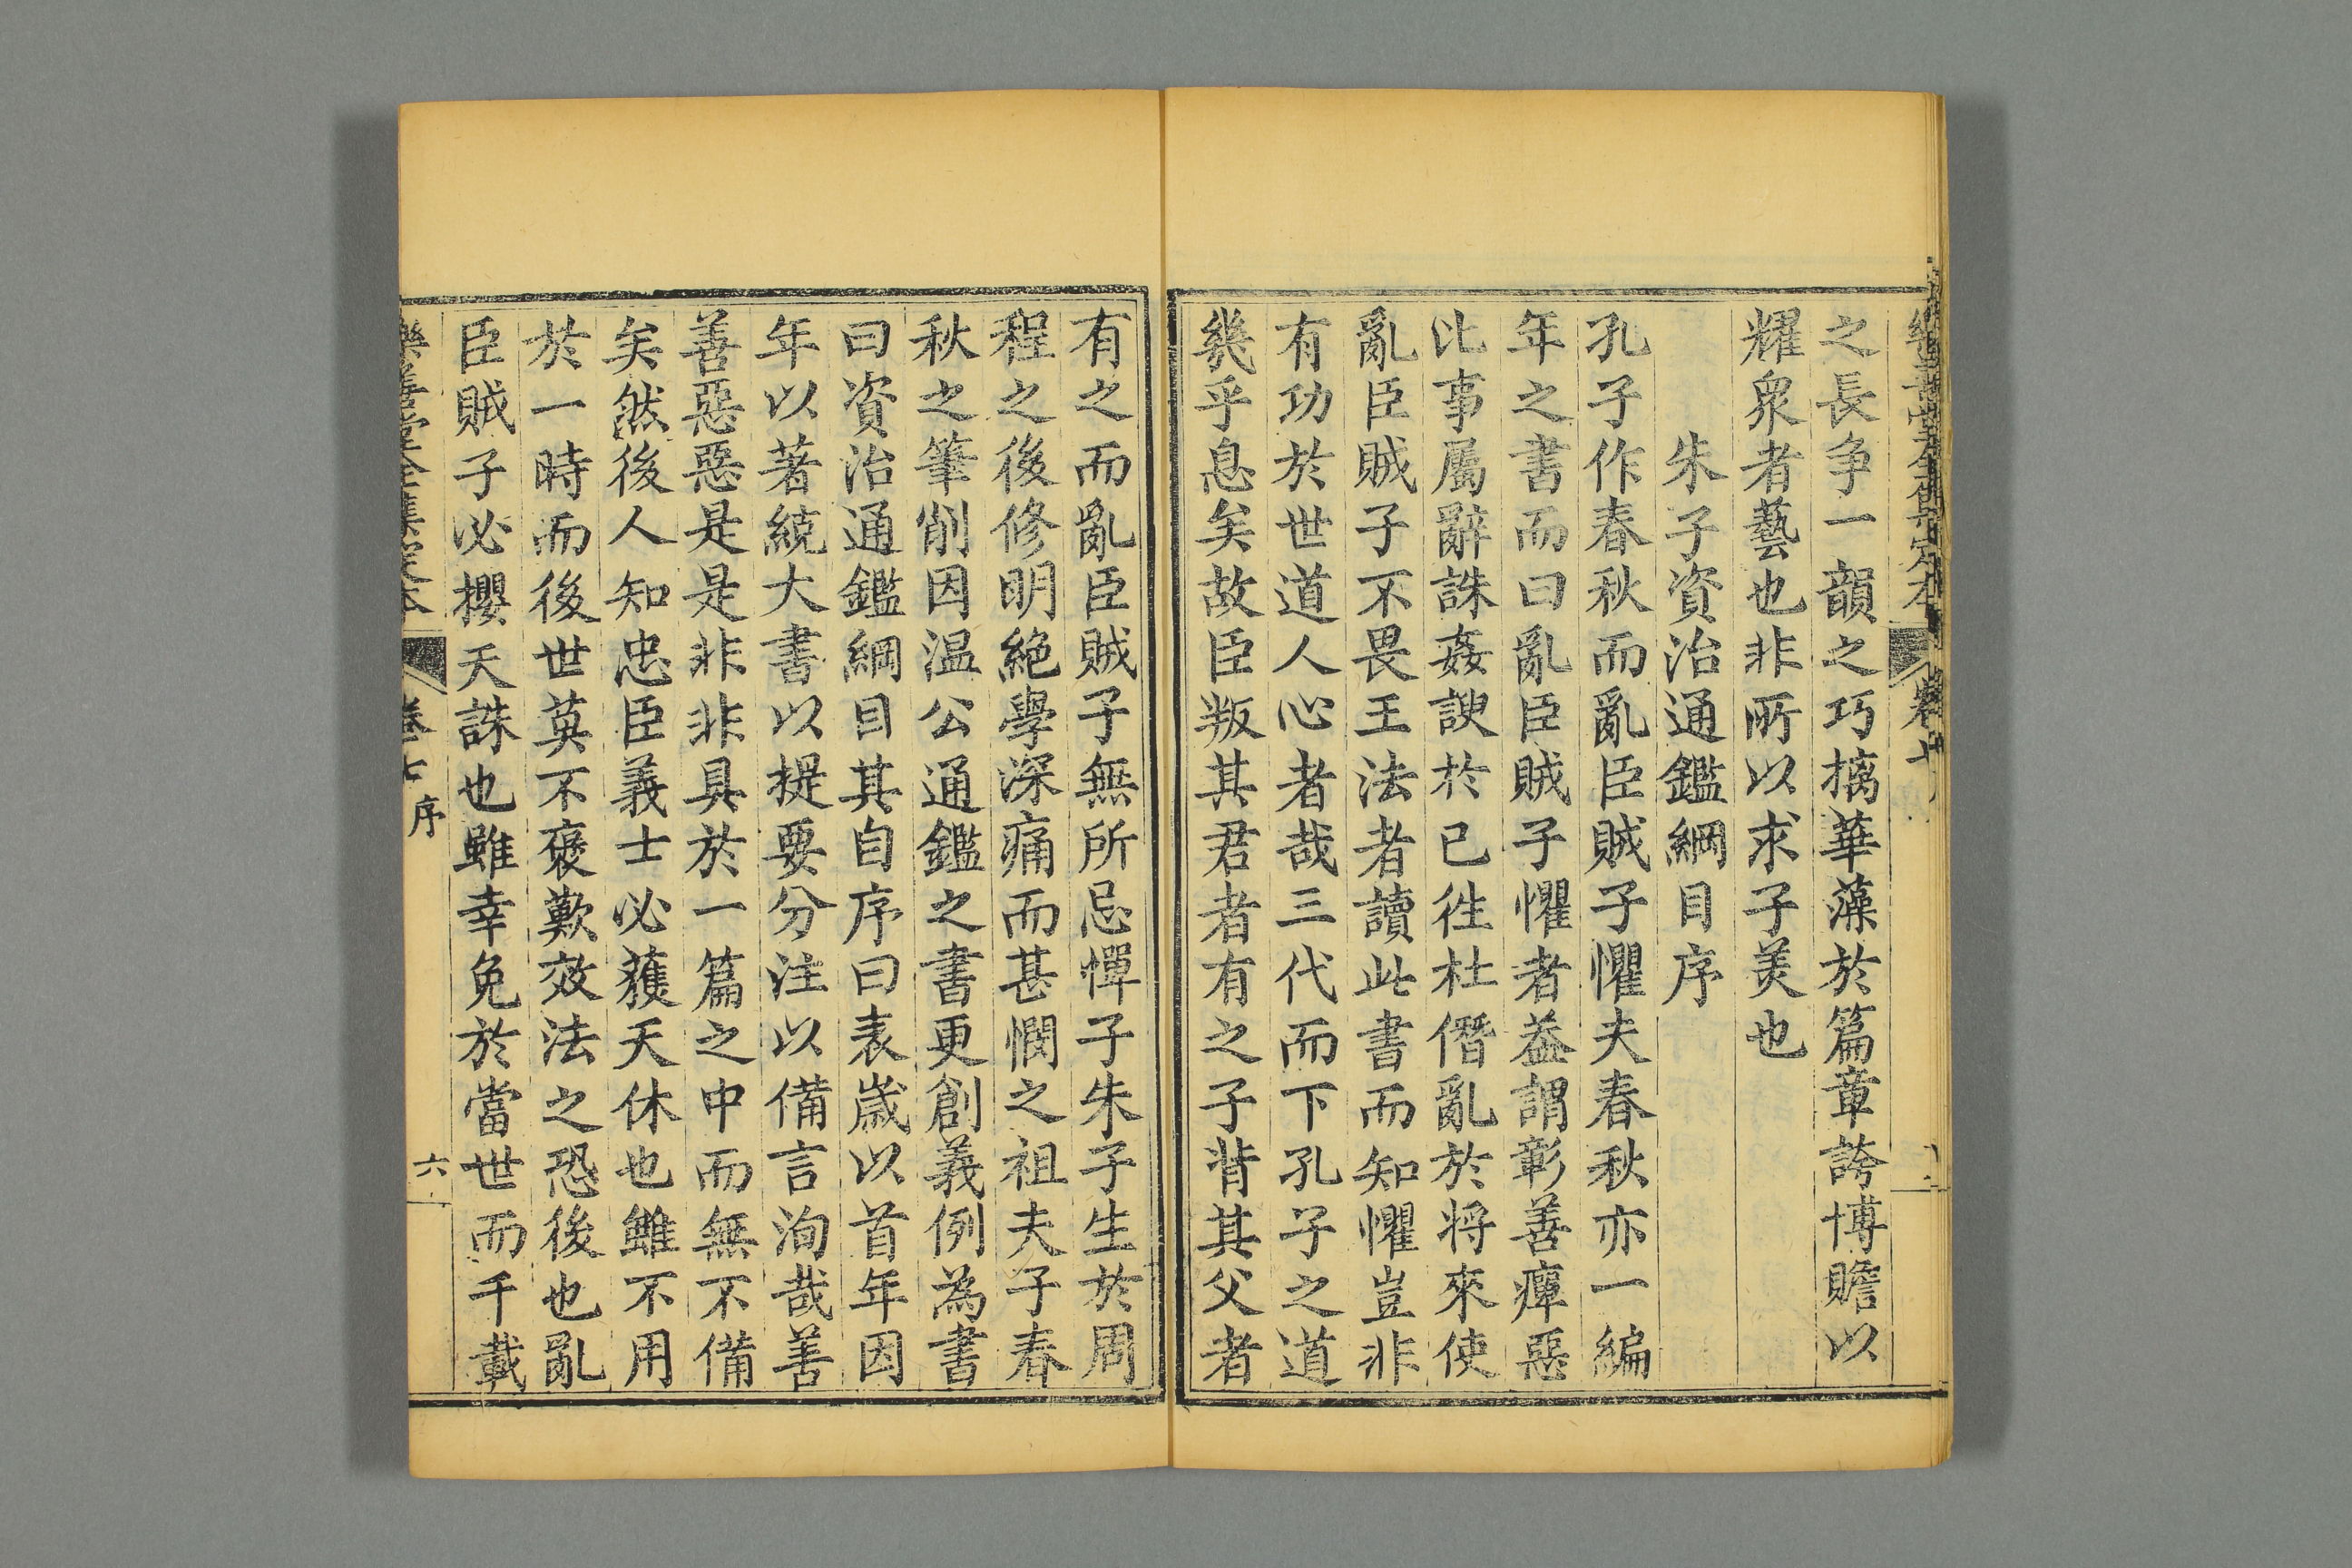 之長爭一韻之巧摛華藻於篇章誇博贍以
耀衆者藝也非所以求子美也
朱子資治通鑑綱目序
孔子作春秋而亂臣賊子懼夫春秋亦一編
年之書而曰亂臣賊子懼者蓋謂彰善癉惡
比事屬辭誅姦諛於已徃杜僭亂於將來使
亂臣賊子不畏王法者讀此書而知懼豈非
有功於世道人心者哉三代而下孔子之道
幾乎息矣故臣叛其君者有之子背其父者
有之而亂臣賊子無所忌憚子朱子生於周
程之後修明絕學深痛而甚憫之祖夫子春
秋之筆削因温公通鑑之書更創義例為書
曰資治通鑑綱目其自序曰表嵗以首年因
年以著統大書以提要分注以備言洵哉善
善惡惡是是非非具於一篇之中而無不備
矣然後人知忠臣義士必獲天休也雖不用
於一時而後世莫不褒歎效法之恐後也亂
臣賊子必攖天誅也雖幸免於當世而千載
樂善堂全集定本 卷七 序 六